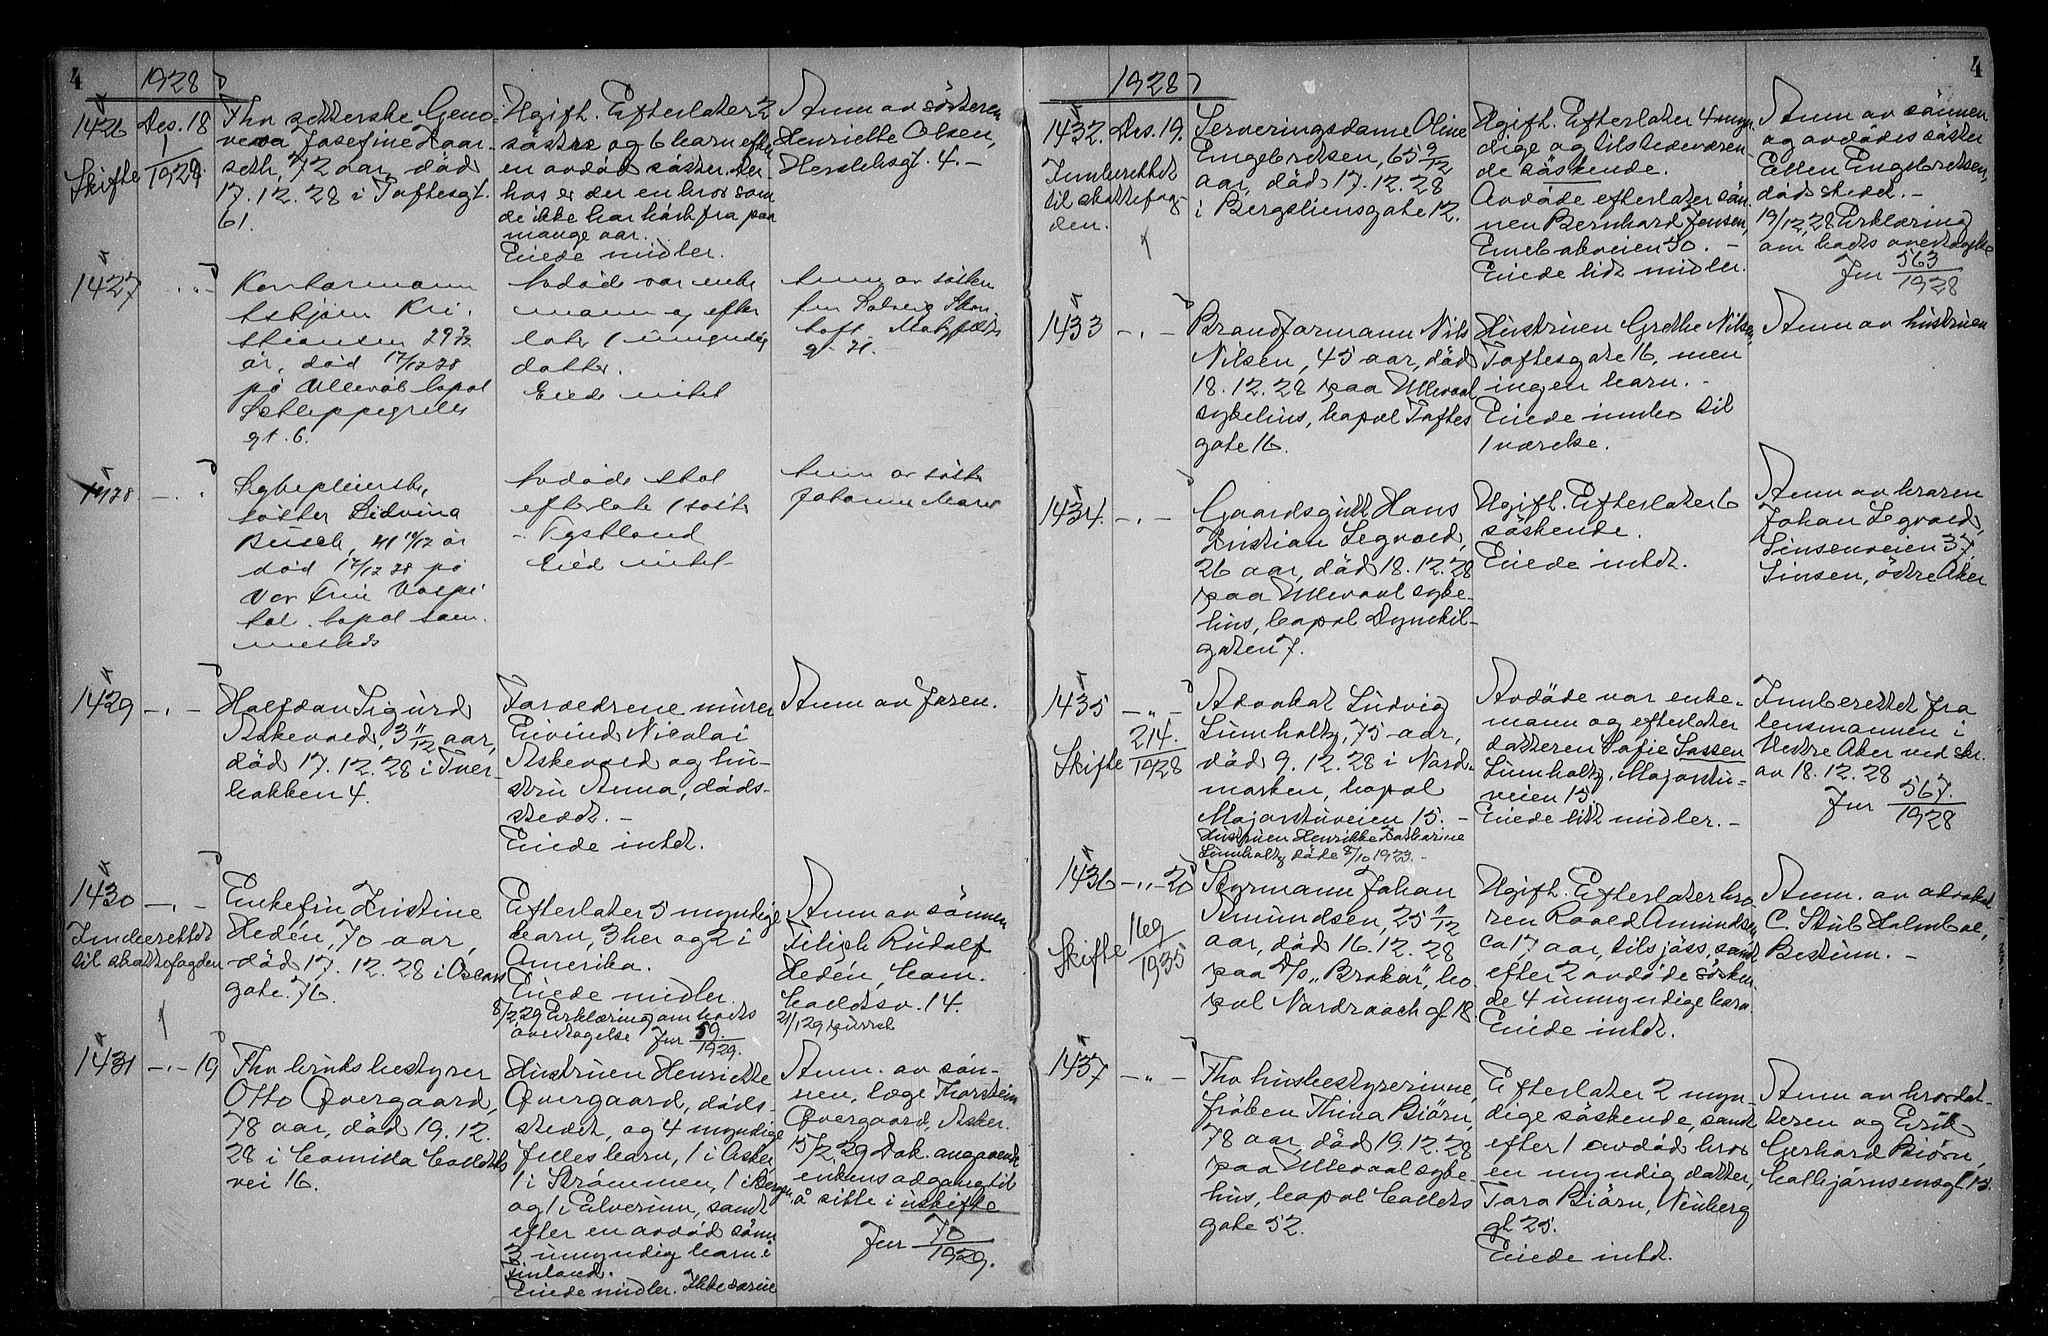 4
1928
1426 Des. 18
Skifte 1/1929
Fhv
veva Josefine Haar-
seth, 72 aar, død
17.12.28 i Toftesgt.
61.
Ugift. Efterlater 2
søstre og 6 barn efter
en avdød søster. Der
hos er der en bror som
de ikke har hørt fra paa
mange aar.
Eiede midler.
Anm av søsteren
Henriette Olsen,
Herslebsgt. 4. –
1427 – " –
Kontormann
Kri-
stiansen 29
år, død 17/12 28
på Ullevål bopal
Schleppegrells
gt. 6.
Avdøde var enke
mann og efter
later 1 umyndig
datter.
Eiede intet
Anm av søster
fru Solveig
1428 – " –
Sykepleierske,
søster Lidvina
Busch, 41 10/12 år
død 17/12 28 på
Vor Frue Hospi
tal. bopal sam-
mesteds
Avdøde skal
efterlate 1 søster
i Tyskland
Eied intet
Anm av søster
Johanne Marie
1429 – " –
Halfdan Sigurd
Askevold, 3 11/12 aar,
død 17.12.28 i Tver-
bakken 4.
Forældrene murer
Eivind Nicolai
Askevold og hu-
stru Anna, døds-
stedet. –
Eiede intet.
Anm av faren.
1430 – " –
Innberettet
til skattefogden
Enkefru Kristine
Hedén, 70 aar,
død 17.12.28 i Oscars
gate 76.
Efterlater 5 myndige
barn, 3 her og 2 i
Amerika.
Eiede midler.
8/2 29 Erklæring om bodts
overtagelse Jnr 59/1929.
Anm av sønnen
Filiph Rudolf
Hedén, Cam.
Colletsv. 14.
21/1 29 purret
1431 – " – 19
Fhv bruksbestyrer
Otto Øvergaard,
78 aar, død 19.12.
28 i Camilla Colletts
vei 16.
Hustruen Henriette
Øvergaard, døds-
stedet, og 4 myndige
fellesbarn, 1 i Asker
1 i Strømmen, 1 i Bergen
og 1 i Elverum, samt
efter en avdød sønn
3 umyndig barn i
Finland.
Eiede midler. Ikke særeie
Anm. av søn-
nen, læge Thorstein
Øvergaard, Asker.
15/2 29 Dok. angaaende
enkens adgang til
å sitte i uskifte
Jnr 70/1929.
4
1928
1432. Des. 19.
Innberettet
til skattefog-
den.
Serveringsdame Oline
Engebretsen, 65 9/12
aar, død 17.12.28
i Bergsliensgate 12.
Ugift. Efterlater 4 myn
dige og tilstedeværen-
de søskende.
Avdøde efterlater søn-
nen Bernhard Jensen,
Enebakveien 50. –
Eiede litt midler.
Anm av sønnen
og avdødes søster
Ellen Engebretsen,
dødsstedet. –
19/12 28 Erklæring
om bodts overtagelse
Jnr 563/1928
1433 – " –
Brandformann Nils
Nilsen, 45 aar, død
18.12.28 paa Ullevaal
sykehus, bopal Toftes
gate 16.
Hustruen Grethe Nilsen,
Toftesgate 16, men
ingen barn. –
Eiede innbo til
1 værelse.
Anm av hustruen
1434. – " –
Gaardsgutt Hans
Kristian Segvold,
26 aar, død 18.12.28
paa Ullevaal syke-
hus, bopal Dynekil-
gaten 7.
Ugift. Efterlater 6
søskende.
Eiede intet.
Anm av broren
Johan Segvold,
Sinsenveien 37,
Sinsen, østre Aker
1435 – " –
Skifte 214./1928
Advokat Ludvig
Lumholtz, 75 aar,
død 9.12.28 i Nord-
marken, bopal
Majorstuveien 15. –
Hustruen Henrikke Katharine
Lumholtz døde 2/10 1923. –
Avdøde var enke-
mann og efterlater
datteren Sofie Sassen
Lumholtz, Majorstu-
veien 15.
Eiede litt midler. –
Innberettet fra
lensmannen i
Vestre Aker ved skr.
av 18.12.28
Jnr 567./1928
1436 – " – 20
Skifte 169/1935
Styrmann Johan
Amundsen, 25 1/12
aar, død 16.12.28
paa D/s "Brokar", bo-
pal Nordraach gt. 18.
Ugift. Efterlater bro
ren Roald Amundsen,
ca 17 aar, tilsjøss, samt
efter 2 avdøde søsken-
de 4 umyndige barn
Eiede intet.
Anm. av advokat
C. Stub Holmboe,
Bestum. –
1437 – " –
Fhv husbestyrerinne,
frøken Thina Biørn,
78 aar, død 19.12.28
paa Ullevaal syke-
hus, bopal Colletts
gate 52.
Efterlater 2 myn-
dige søskende, samt
efter 1 avdød bror
en myndig datter,
Tora Biørn, Neuberg
gt. 25.
Eiede intet.
Anm av brordat-
teren og Erik
Gerhard Biørn,
Calbjørnsensgt. 13.